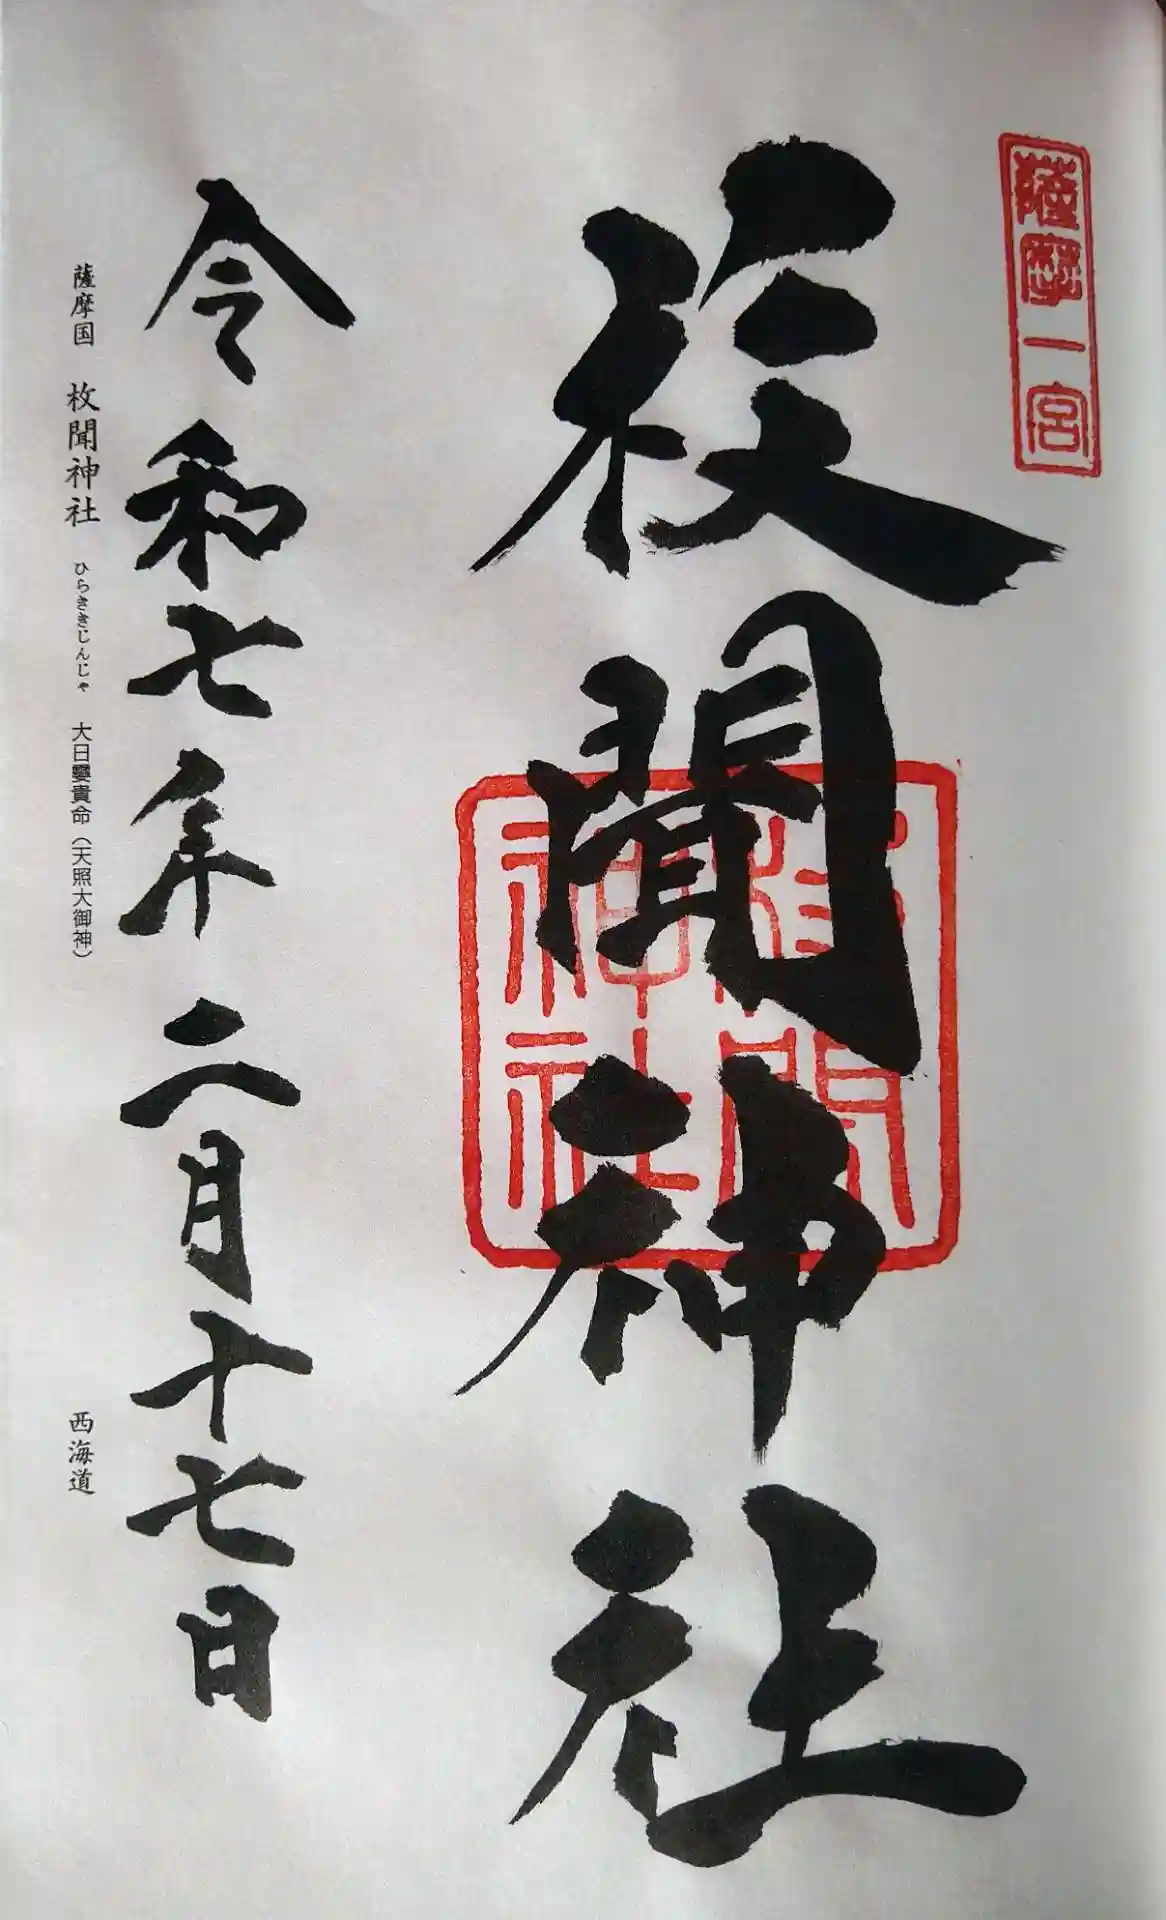 薩摩一宮
枚聞神社
令和七年二月十七日
薩摩国 枚聞神社 ひらききじんじゃ 大日孁貴命（天照大御神） 西海道